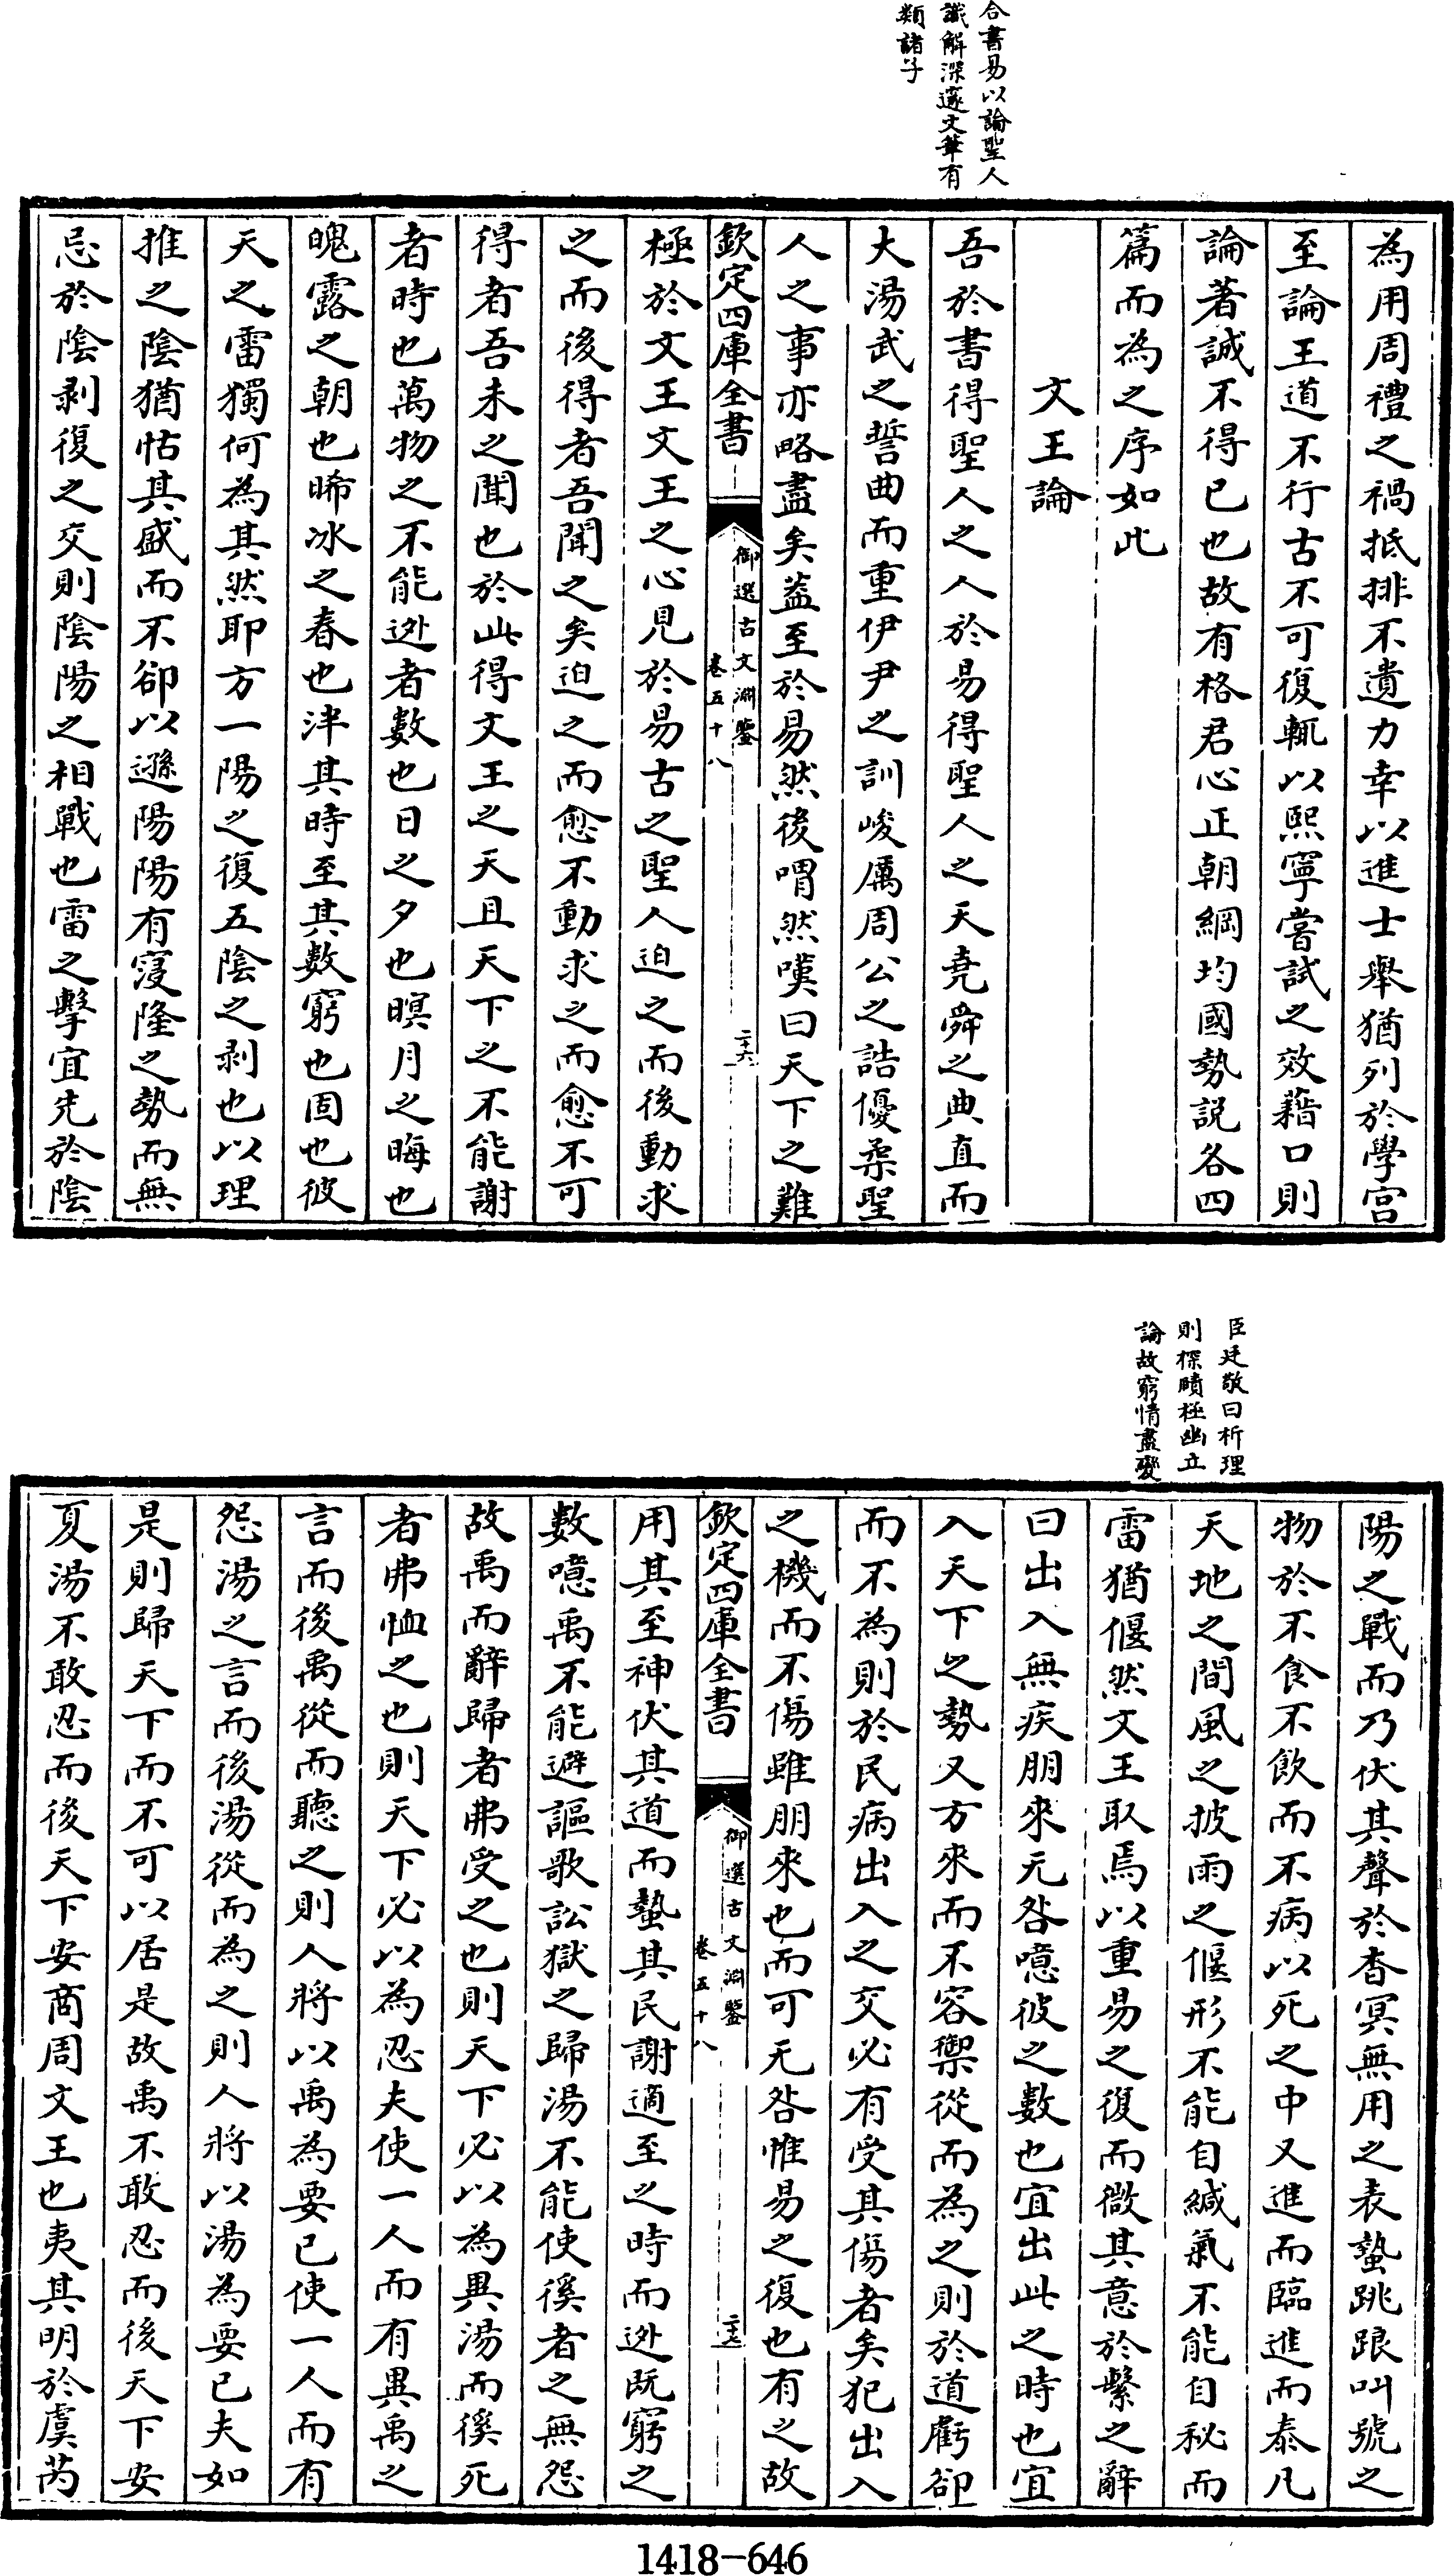 合書易以論聖人
識解深邃文筆有
類諸子
為用周禮之禍抵排不遺力幸以進士舉猶列於學宫
至論王道不行古不可復輒以熙寧嘗試之效藉口則
論著誠不得已也故有格君心正朝綱均國勢説各四
篇而為之序如此
文王論
吾於書得聖人之人於易得聖人之天堯舜之典直而
大湯武之誓曲而重伊尹之訓峻厲周公之誥優柔聖
人之事亦略盡矣葢至於易然後喟然嘆曰天下之難
欽定四庫全書
御選古文淵鑒
卷五十八
二十六
極於文王文王之心見於易古之聖人迫之而後動求
之而後得者吾聞之矣迫之而愈不動求之而愈不可
得者吾未之聞也於此得文王之天且天下之不能謝
者時也萬物之不能逃者數也日之夕也暝月之晦也
魄露之朝也晞冰之春也泮其時至其數窮也固也彼
天之雷獨何為其然耶方一陽之復五陰之剥也以理
推之陰猶怙其盛而不卻以遜陽陽有寖隆之勢而無
忌於陰剥復之交則陰陽之相戰也雷之擊宜先於陰
臣廷敬曰析理
則探賾極幽立
論故窮情盡變
陽之戰而乃伏其聲於杳冥無用之表蟄跳踉叫號之
物於不食不飲而不病以死之中又進而臨進而泰凡
天地之間風之披雨之偃形不能自緘氣不能自秘而
雷猶偃然文王取焉以重易之復而微其意於繫之辭
曰出入無疾朋來无咎噫彼之數也宜出此之時也宜
入天下之勢又方來而不容禦從而為之則於道虧卻
而不為則於民病出入之交必有受其傷者矣犯出入
之機而不傷雖朋來也而可无咎惟易之復也有之故
欽定四庫全書
御選古文淵鑒
卷五十八
二十七
用其至神伏其道而蟄其民謝適至之時而逃既窮之
數噫禹不能避謳歌訟獄之歸湯不能使徯者之無怨
故禹而辭歸者弗受之也則天下必以為異湯而徯死
者弗恤之也則天下必以為忍夫使一人而有異禹之
言而後禹從而聽之則人將以禹為要已使一人而有
怨湯之言而後湯從而為之則人將以湯為要已夫如
是則歸天下而不可以居是故禹不敢忍而後天下安
夏湯不敢忍而後天下安商周文王也夷其明於虞芮
1418-646